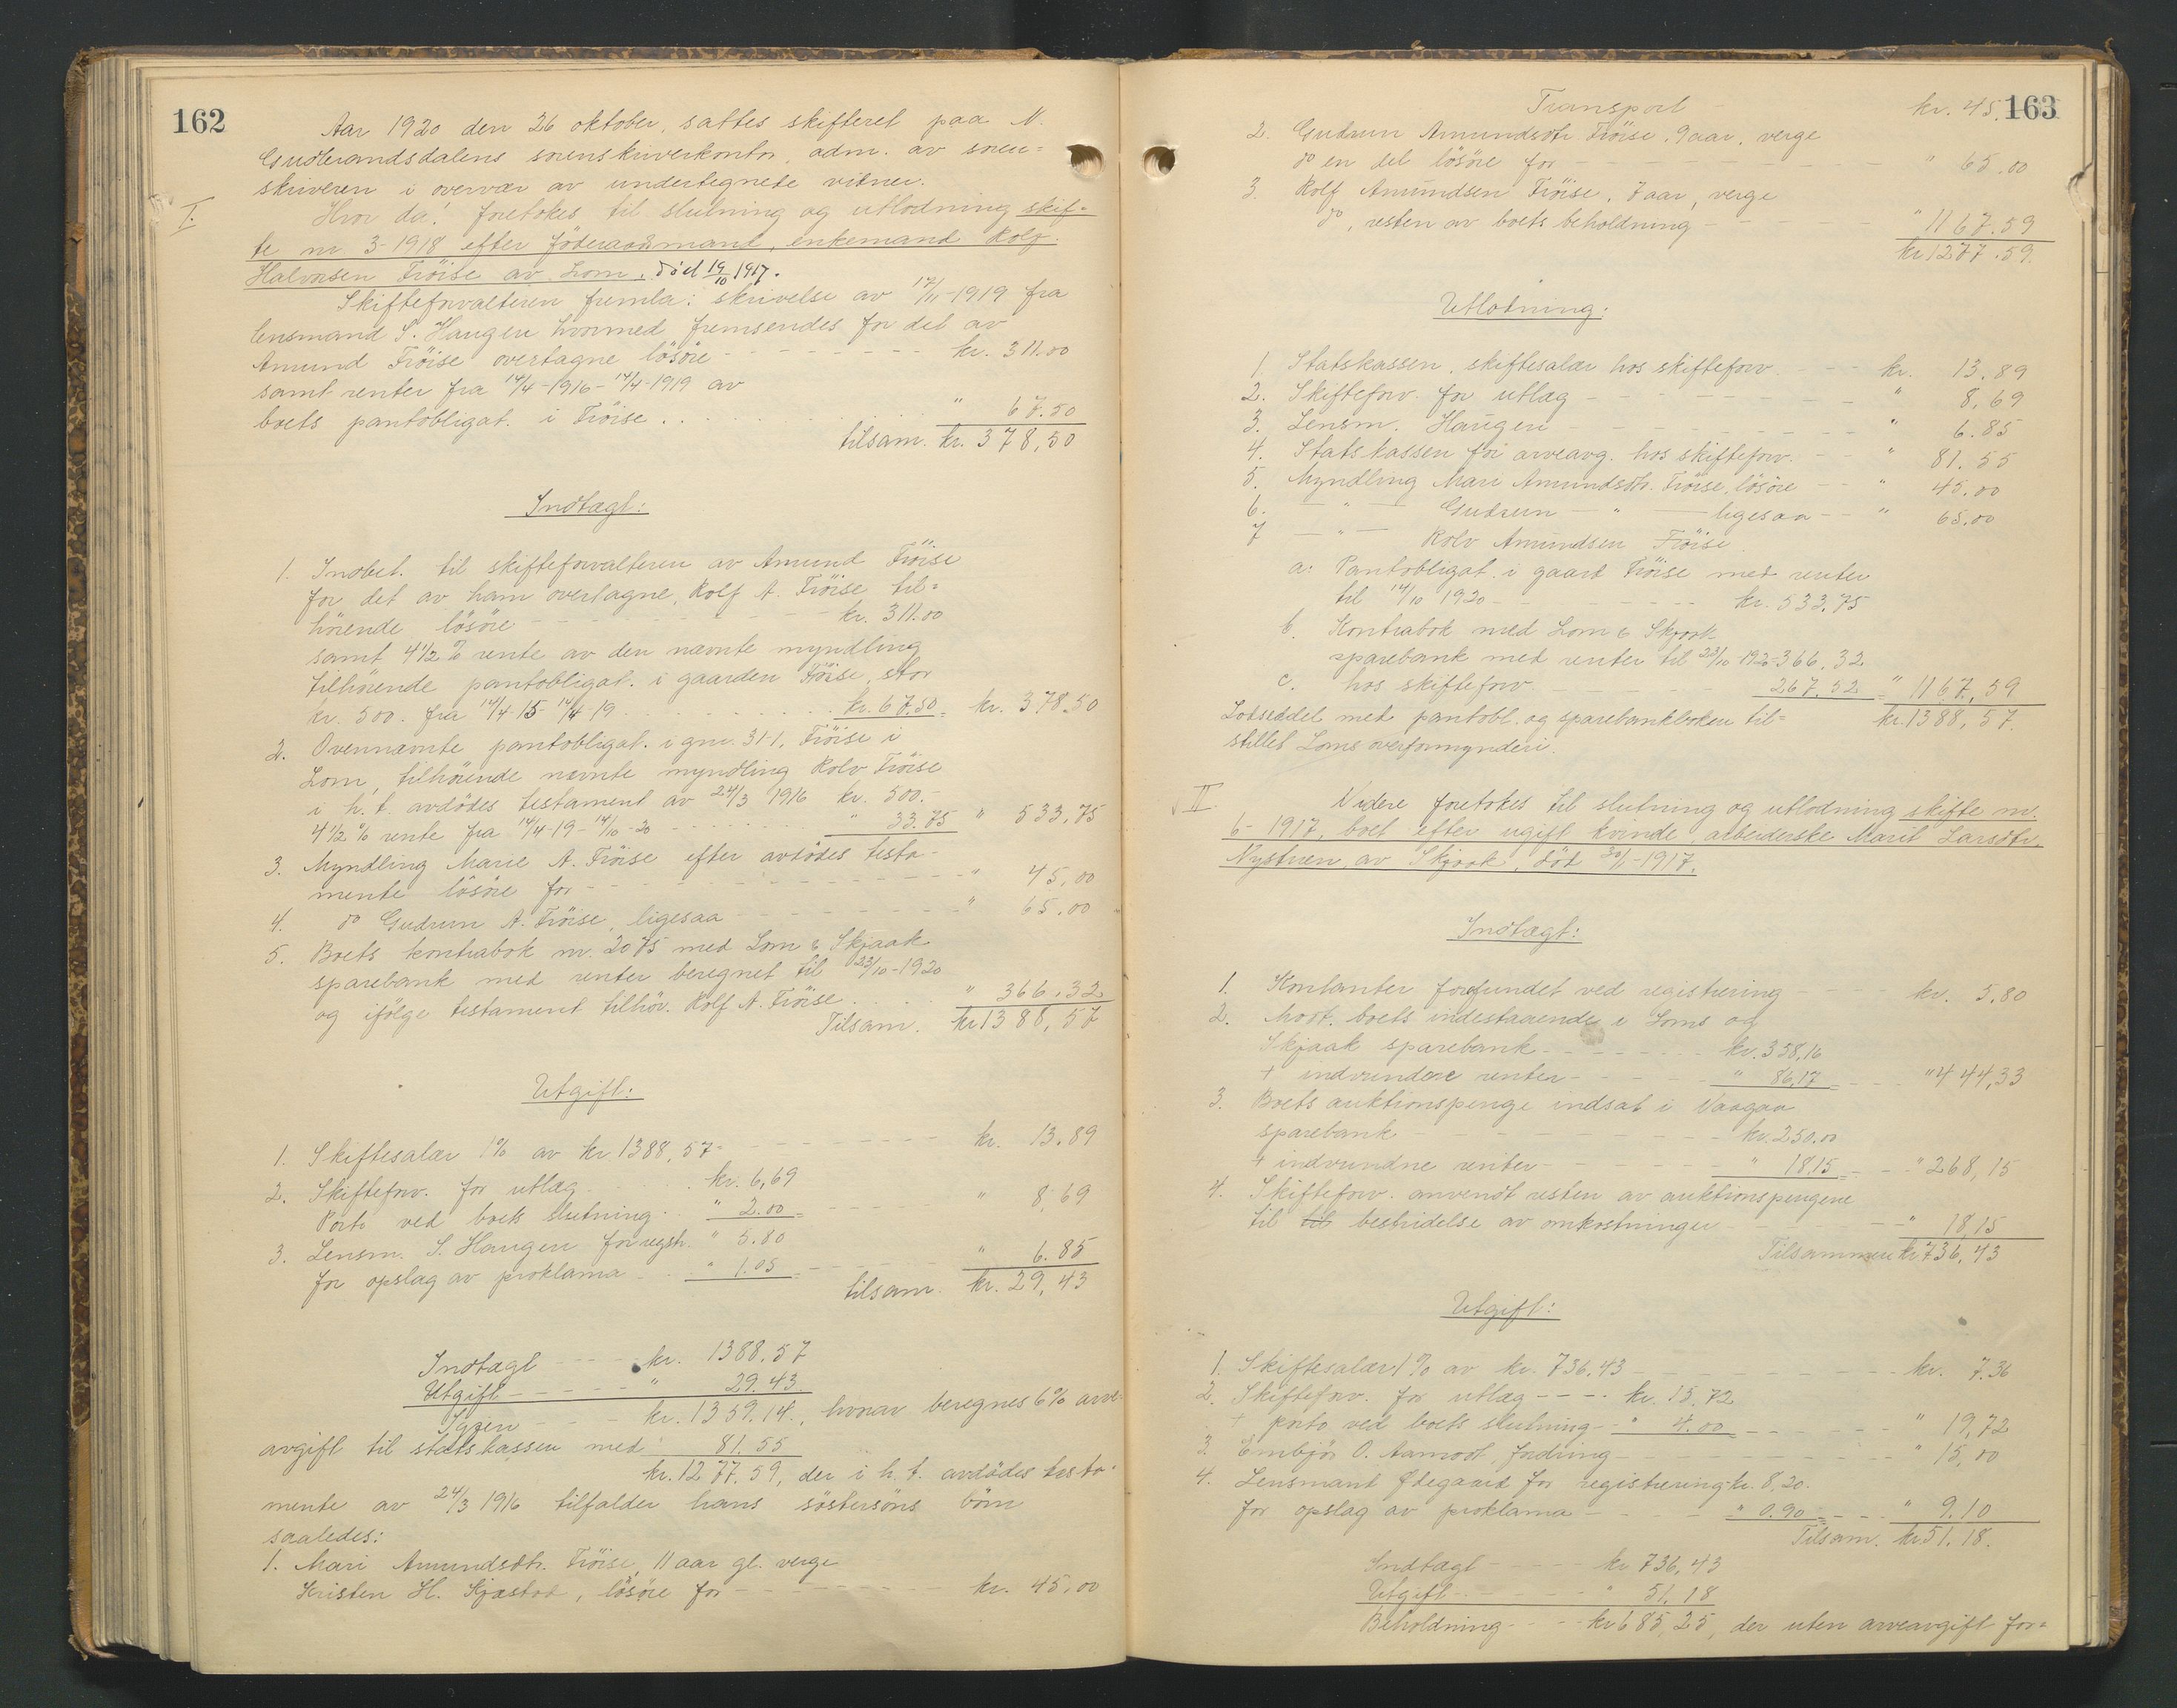 162
Aar 1920 den 26 oktober, sattes skifteret paa N.
Gudbrandsdalens sorenskriverkontor, adm. av soren=
skriveren i overvær av undertegnete vitner.
I.
Hvor da! foretokes til slutning og utlodning skif-
te nr 3-1918 efter föderaadsmand, enkemand Rolf
Halvorsen Fröise av Lom, död 19/10 1917.
Skifteforvalteren fremla: skrivelse av 17/11-1919 fra
lensmand S. Haugen hvormed fremsendes for det av
Amund Fröise overtagne lösöre - - - kr. 311.00
samt renter fra 14/4-1916-14/4-1919 av
boets pantobligat. i Fröise . . . " 67.50
tilsam. kr. 378,50
Indtægt:
1. Indbet. til skifteforvalteren av Amund Fröise
for det av ham overtagne, Rolf A. Fröise til=
hörende lösöre - - - kr. 311.00
samt 4 1/2 % rente av den nævnte myndling
tilhörende pantobligat. i gaarden Fröise, stor
kr. 500. fra 14/4-15-14/4-19 . . . kr. 67.50 = kr. 378.50
2. Ovennævnte pantobligat. i gnr. 31-1, Fröise i
Lom, tilhörende nævnte myndling Rolv Fröise
i h. t. avdödes testament av 24/3 1916 kr. 500.-
4 1/2 % rente fra 14/4-19-14/10-20 - - - " 33.75 " 533,75
3. Myndling Marie A. Fröise efter avdödes testa-
mente lösöre for - - - " 45,00
4. do Gudrun A. Fröise, ligesaa - - - " 65.00
5. Boets kontrabok nr. 2075 med Lom & Skjaak
sparebank med renter beregnet til 23/10-1920
og ifölge testament tilhör. Rolf A. Fröise . . . " 366.32
Tilsam. kr 1388,57
Utgift:
1. Skiftesalær 1% av kr 1388,57 - - - kr. 13.89
2. Skifteforv. for utlæg . . . kr. 6,69
Porto ved boets slutning . . " 2.00 = - - - " 8,69
3. Lensm. S. Haugen for regstr. " 5.80
for opslag av proklama - - - " 1.05 = - - - " 6.85
tilsam. kr. 29,43
Indtægt - - - kr. 1388.57
Utgift - - - " 29.43
Igjen - - - kr. 1359.14., hvorav beregnes 6% arve-
avgift til statskassen med " 81.55
kr. 1277.59, der i h. t. avdödes testa-
mente av 24/3 1916 tilfalder hans söstersöns börn
saaledes:
1. Mari Amundsdtr. Fröise, 11 aar gl. verge
Kristen H. Kjæstad, lösöre for - - - kr. 45,00
163
Transport - kr. 45.
2. Gudrun Amundsdtr Fröise, 9 aar, verge
do en del lösöre for - - - " 65.00
3. Rolf Amundsen Fröise, 7 aar, verge
do, resten av boets beholdning - - - " 1167.59
kr 1277.59.
Utlodning:
1. Statskassen, skiftesalær hos skifteforv. - - - kr. 13,89
2. Skifteforv. for utlæg - - - " 8,69
3. Lensm. Haugen - - - " 6.85
4. Statskassen for arveavg. hos skifteforv. - - " 81.55
5. Myndling Mari Amundsdtr. Fröise, lösöre - - " 45,00
6. — " — Gudrun — " — ligesaa - - " 65,00
7 — " — Rolv Amundsen Fröise.
a: Pantobligat. i gaard Fröise med renter
til 14/10 1920 - - - kr. 533,75
b. Kontrabok med Lom & Skjaak
sparebank med renter til 23/10-1920 - 366,32
c. hos skifteforv. - - - 267.52 = " 1167,59
Lodseddel med pantobl. og sparebankboken til= kr. 1388,57.
stillet Loms overformynderi.
II
Videre foretokes til slutning og utlodning skifte nr.
6-1917, boet efter ugift kvinde, arbeiderske Marit Larsdtr.
Nystuen, av Skjaak, död 30/1-1917.
Indtægt:
1. Kontanter forefundet ved registrering - - - kr. 5,80
2. Mott. boets indestaaende i Loms og
Skjaak sparebank - - - kr. 358,16
+ indvundne renter - - - " 86,17 = - - - " 444,33
3. Boets auktionspenge indsat i Vaagaa
sparebank - - - kr. 250.00
+ indvundne renter - - - " 18.15 = - - " 268,15
4. Skifteforv. anvendt resten av auktionspengene
til til bestridelse av omkostninger - - - " 18,15
Tilsammen kr 736,43
Utgift:
1. Skiftesalær 1% av kr. 736.43 - - - kr. 7.36
2. Skifteforv. for utlæg - - - kr. 15.72
+ porto ved boets slutning - " 4.00 = - - - " 19,72
3. Embjör O. Aamodt, fordring - - - " 15,00
4. Lensmand Ødegaard for registrering - kr. 8,20.
for opslag av proklama - - - " 0.90 = - - - " 9.10
Tilsam. kr 51.18.
Indtægt - - - kr 736,43
Utgift - - - " 51,18
Beholdning - - - kr 685,25, der uten arveavgift for=